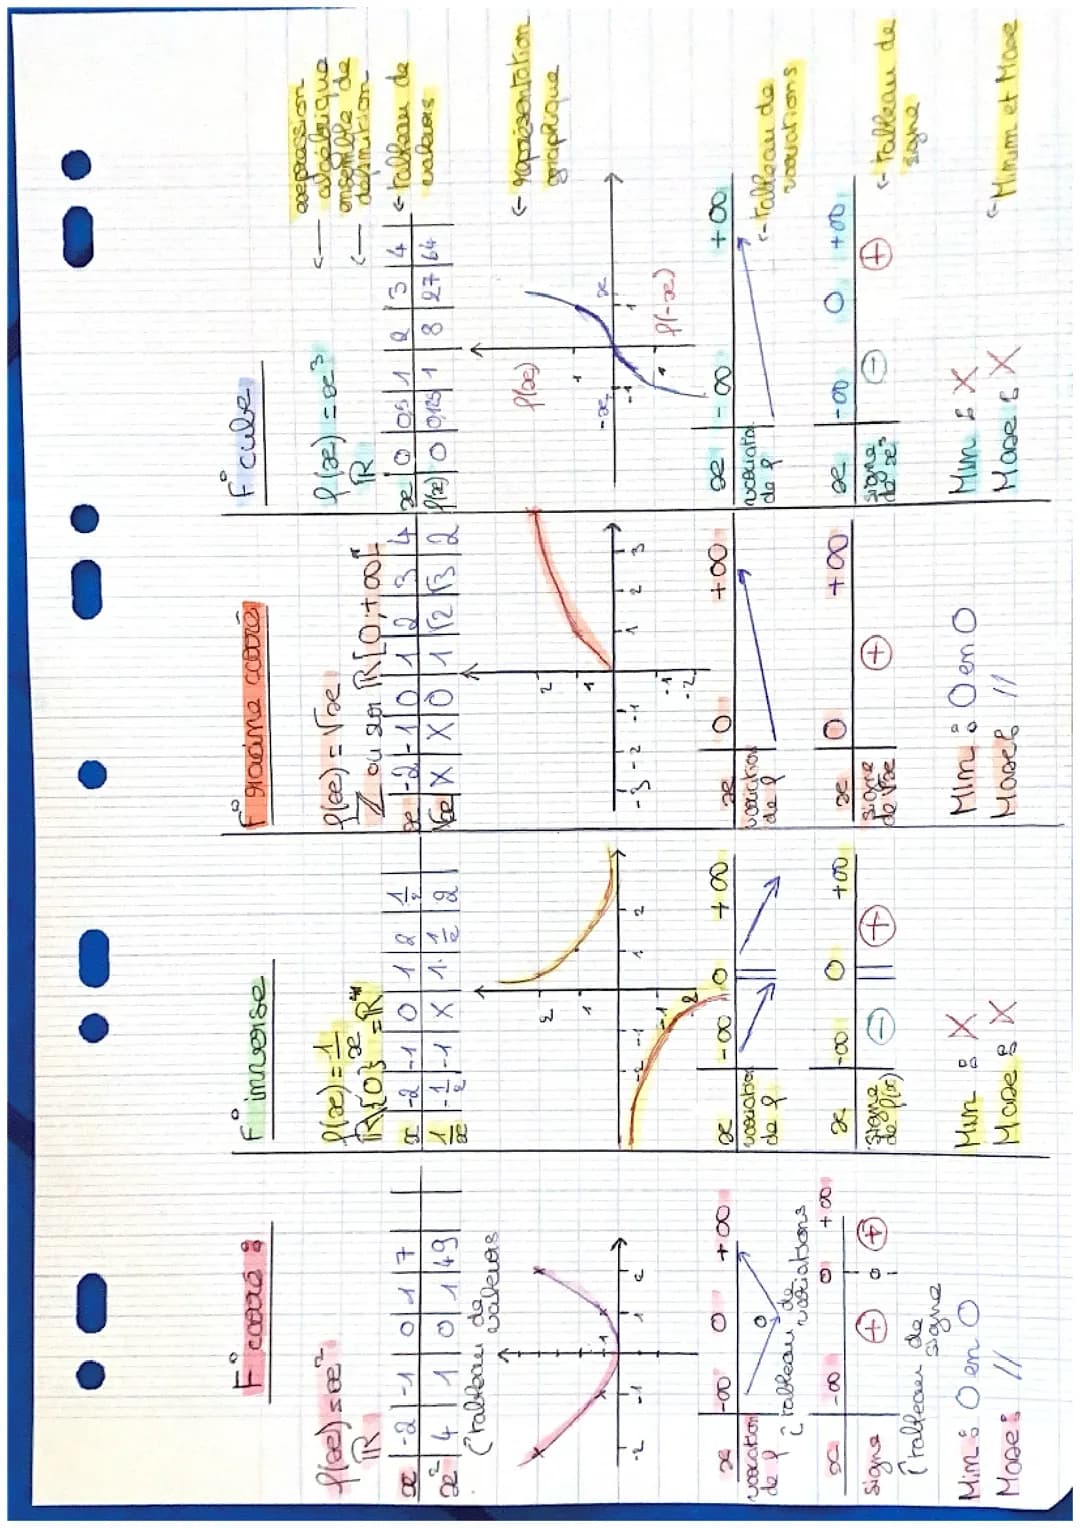 F° carré :
f(x) = x²
ℝ
x | -2 | -1 | 0 | 1 | 7
x² | 4 | 1 | 0 | 1 | 49
(tableau de valeurs
-2 -1 1 2
1
x -∞ 0 +∞
variation de f
0
(tableau de variations
x -∞ 0 +∞
signe + 0 +
(tableau de signe
Min : 0 en 0
Maxe : //
F° inverse
f(x) = 1/x
ℝ\{0} = ℝ*
x | -2 | -1 | 0 | 1 | 2 | 1/2
1/x | -1/2 | -1 | X | 1 | 1/2 | 2
2
1
-2 -1 1 2
-1
-2
x -∞ 0 +∞
variation de f
x -∞ 0 +∞
signe de f(x) - || +
Min : X
Maxe : X
F° racine carré
f(x) = √x
ℤ ou sur ℝ [0;+∞[
x | -2 | -1 | 0 | 1 | 2 | 3 | 4
√x | X | X | 0 | 1 | √2 | √3 | 2
2
1
-3 -2 -1 1 2 3
-1
-2
x 0 +∞
variation de f
x 0 +∞
signe de √x +
Mim : 0 en 0
Maxe : //
F° cube
f(x) = x³
ℝ
x | 0 | 0,5 | 1 | 2 | 3 | 4
f(x) | 0 | 0,125 | 1 | 8 | 27 | 64
f(x)
1
-x -1 1 x
-1
f(-x)
x -∞ +∞
variation de f
x -∞ 0 +∞
signe de x³ - +
Min : X
Maxe : X
← expression algébrique
← ensemble de définition
← tableau de valeurs
← représentation graphique
← tableau de variations
← tableau de signe
← Minimum et Maxe